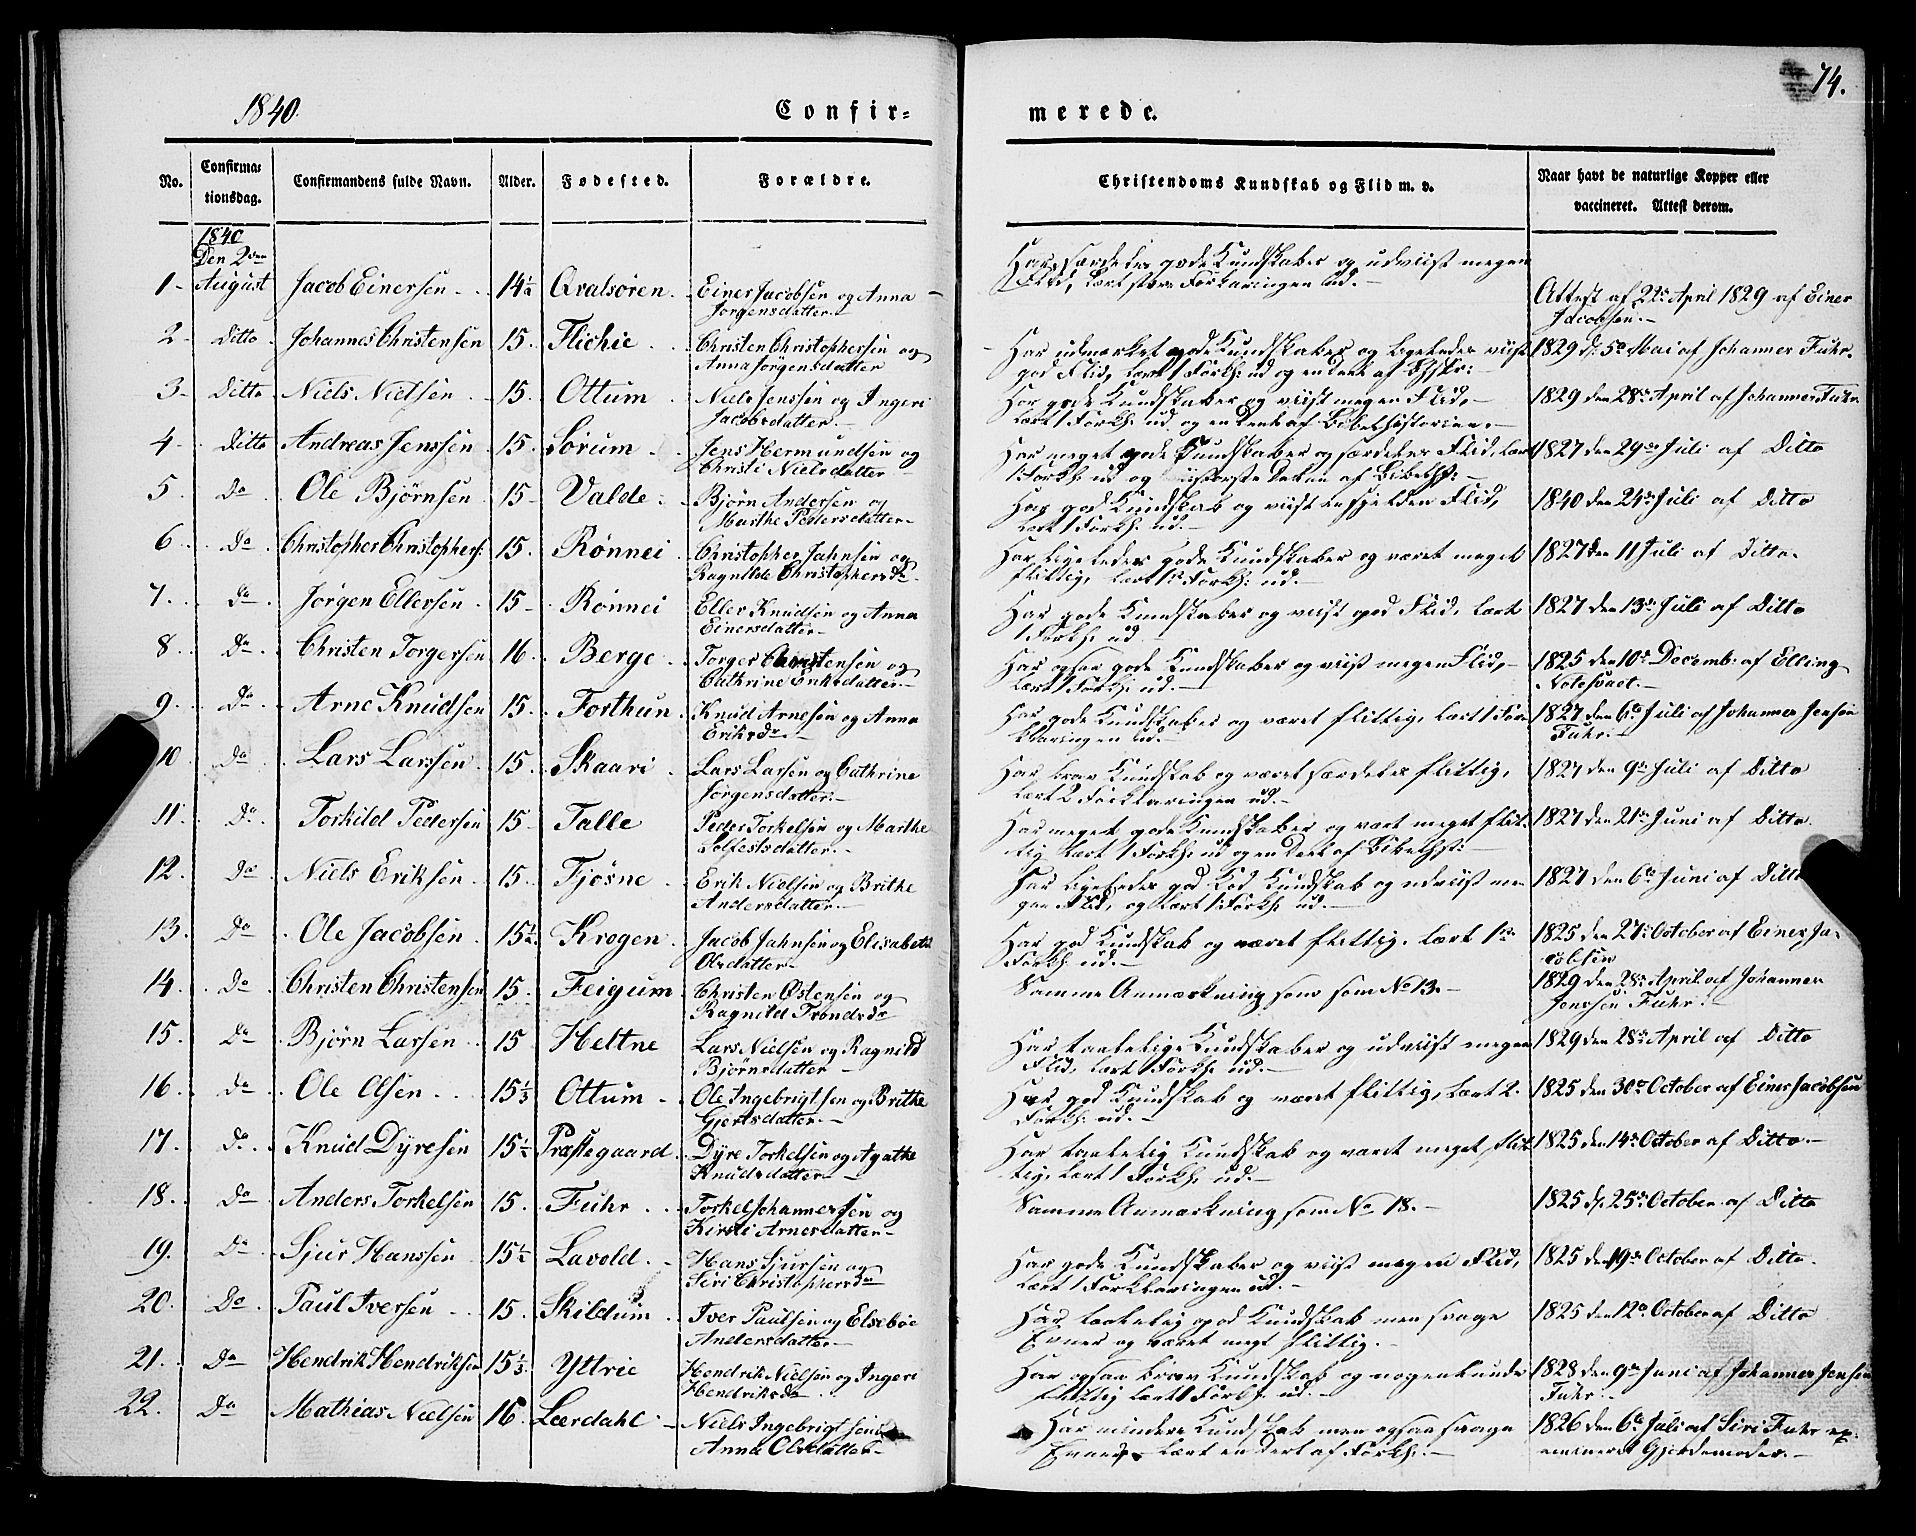 1840.
Confir=
merede.
74.
No.
Confirma=
tionsdag.
Confirmandens fulde Navn.
Alder.
Fødested.
Forældre.
Christendoms Kundskab og Flid m. v.
Naar havt de naturlige Kopper eller
vaccineret. Attest derom.
1840
Den 2den
1 August Jacob Einersen 14½ Qvalsøren. Einer Jacobsen og Anna
Jørgensdatter.
Har særdeles gode Kundskaber og udviist megen
Flid, lært store Forklaringen ud.
Attest af 22de April 1829 af Einer
Jacobsen.
2 Ditto Johannes Christensen 15. Flichie Christen Christophersen og
Anna Jørgensdatter
Har udmærket gode Kundskaber og ligeledes viist
god Flid, lært 1 Forkl: ud og en Deel af
1829 d. 5te Mai af Johannes Fuhr.
3 Ditto Niels Nielsen 15. Ottum Niels Jenssen og Ingeri
Jacobsdatter.
Har gode Kundskaber og viist megen Flid,
lært 1 Forkl: ud og en Deel af Bibelhistorien.
1829 den 28de April af Johannes Fuhr
4 Ditto Andreas Jenssen 15. Sørum Jens Hermundsen og
Christi Nielsdatter
Har meget gode Kundskaber og særdeles Flid, lært
1 Forkl: ud og første Delen af Bibelhst:
1827 den 29de Juli af Ditto
5 Do Ole Bjørnsen 15 Valde Bjørn Andersen og
Marthe Pedersdatter
Har god Kundskab og viist en Flid,
lært 1 Forkl: ud.
1840 den 24de Juli af Ditto
6 Do Christopher Christophers: 15. Rønnei Christopher Jahnsen og
Ragnilde Christophersdr
Har ligeledes gode Kundskaber og været meget
flittig, lært 1 Forkl: ud.
1827 den 11 Juli af Ditto.
7. Do Jørgen Ellersen 15 Rønnei Eller Knudsen og Anna
Einersdatter
Har gode Kundskaber og viist god Flid, lært
1 Forkl: ud
1827 den 13de Juli af Ditto
8 Do Christen Torgersen 16. Berge Torger Christensen og
Cathrine Eriksdatter
Har ogsaa gode Kundskaber og viist megen Flid,
lært 1 Forkl: ud.
1825 den 10de Decemb: af Elling
9. Do Arne Knudsen 15. Forthun Knud Arnesen og Anna
Eriksdr
Har gode Kundskaber og været flittig, lært 1 For=
klaringen ud.
1827 den 6te Juli af Johannes Jensen
Fuhr.
10 Do Lars Larssen 15. Skaari Lars Larsen og Cathrine
Jørgensdatter.
Har brav Kundskab og været særdeles flittig,
lært 2 Forklaringen ud.
1827 den 9de Juli af Ditto
11. Do Torkild Pedersen 15 Talle Peder Torkelsen og Marthe
Solfestsdatter.
Har meget gode Kundskaber og vært meget flit=
tig lært 1 Forkl: ud og en Deel af Bibelhst:
1827 den 21de Juni af Ditto
12. Do Niels Eriksen 15. Fjøsne Erik Nielsen og Brithe
Andersdatter.
Har ligeledes god Kundskab og udviist me=
gen Flid, og lært 1 Forkl: ud.
1827 den 6te Juni af Ditto
13. Do Ole Jacobsen 15½ Krogen Jacob Jahnsen og Elisabeth
Olsdatter
Har god Kundskab og været flittig. lært 1ste
Forkl: ud.
1825 den 27de October af Einer Ja=
cobsen
14. Do Christen Christensen 15. Feigum Christen Østensen og
Ragnild Trondsdr
Samme Anmærkning som som No 13.
1829 den 28de April af Johannes
Jenssen Fuhr.
15. Do Bjørn Larsen 15 Heltne Lars Nielsen og Ragnild
Bjørnsdatter
Har taalelige Kundskaber og udviist megen
Flid, lært 1 Forkl: ud.
1829 den 28de April af Ditto
16. Do Ole Olsen 15⅓ Ottum Ole Ingebrigtsen og Brithe
Gjertsdatter.
Har god Kundskab og været flittig, lært 2.
Forkl: ud.
1825 den 30te October af Einer Jacobsen
17. Do Knud Dyresen 15¼ Præstegaard Dyre Torkelsen og Agathe
Knudsdatter
Har taalelig Kundskab og været meget flit=
tig, lært 1 Forkl: ud.
1825 den 14de October af Ditto.
18. Do Anders Torkelsen 15. Fuhr Torkel Johannessen og
Kirsti Arnesdatter
Samme Anmærkning som No 18.
1825 d. 25de October af Ditto
19. Do Sjur Hanssen 15½ Lavold Hans Sjursen og
Siri Christophersdr
Har gode Kundskaber og viist megen Flid,
lært 1 Forklaringen ud.
1825 den 19de October af Ditto.
20. Do Paul Iversen 15. Skildum Iver Paulsen og Elsebøe
Andersdatter
Har taalelig god Kundskab men svage
Evner og været megt flittig.
1825 den 12te October af Ditto
21. Do Hendrik Hendriksen 15⅓ Yttrie Hendrik Nielsen og Ingeri
Hendriksdr
Har ogsaa brav Kundskab og nogenlunde
flittig lært 1 Forkl: ud.
1828 den 9de Juni af Johannes Jensen
Fuhr.
22. Do Mathias Nielsen 16. Leerdahl Niels Ingebrigtsen
Anna Olsdatter
Har mindre Kundskab men ogsaa svage
Evner, lært en Deel af Forkl:
1826 den 6te Juli af Siri Fuhr ex=
amineret Gjordemoder.